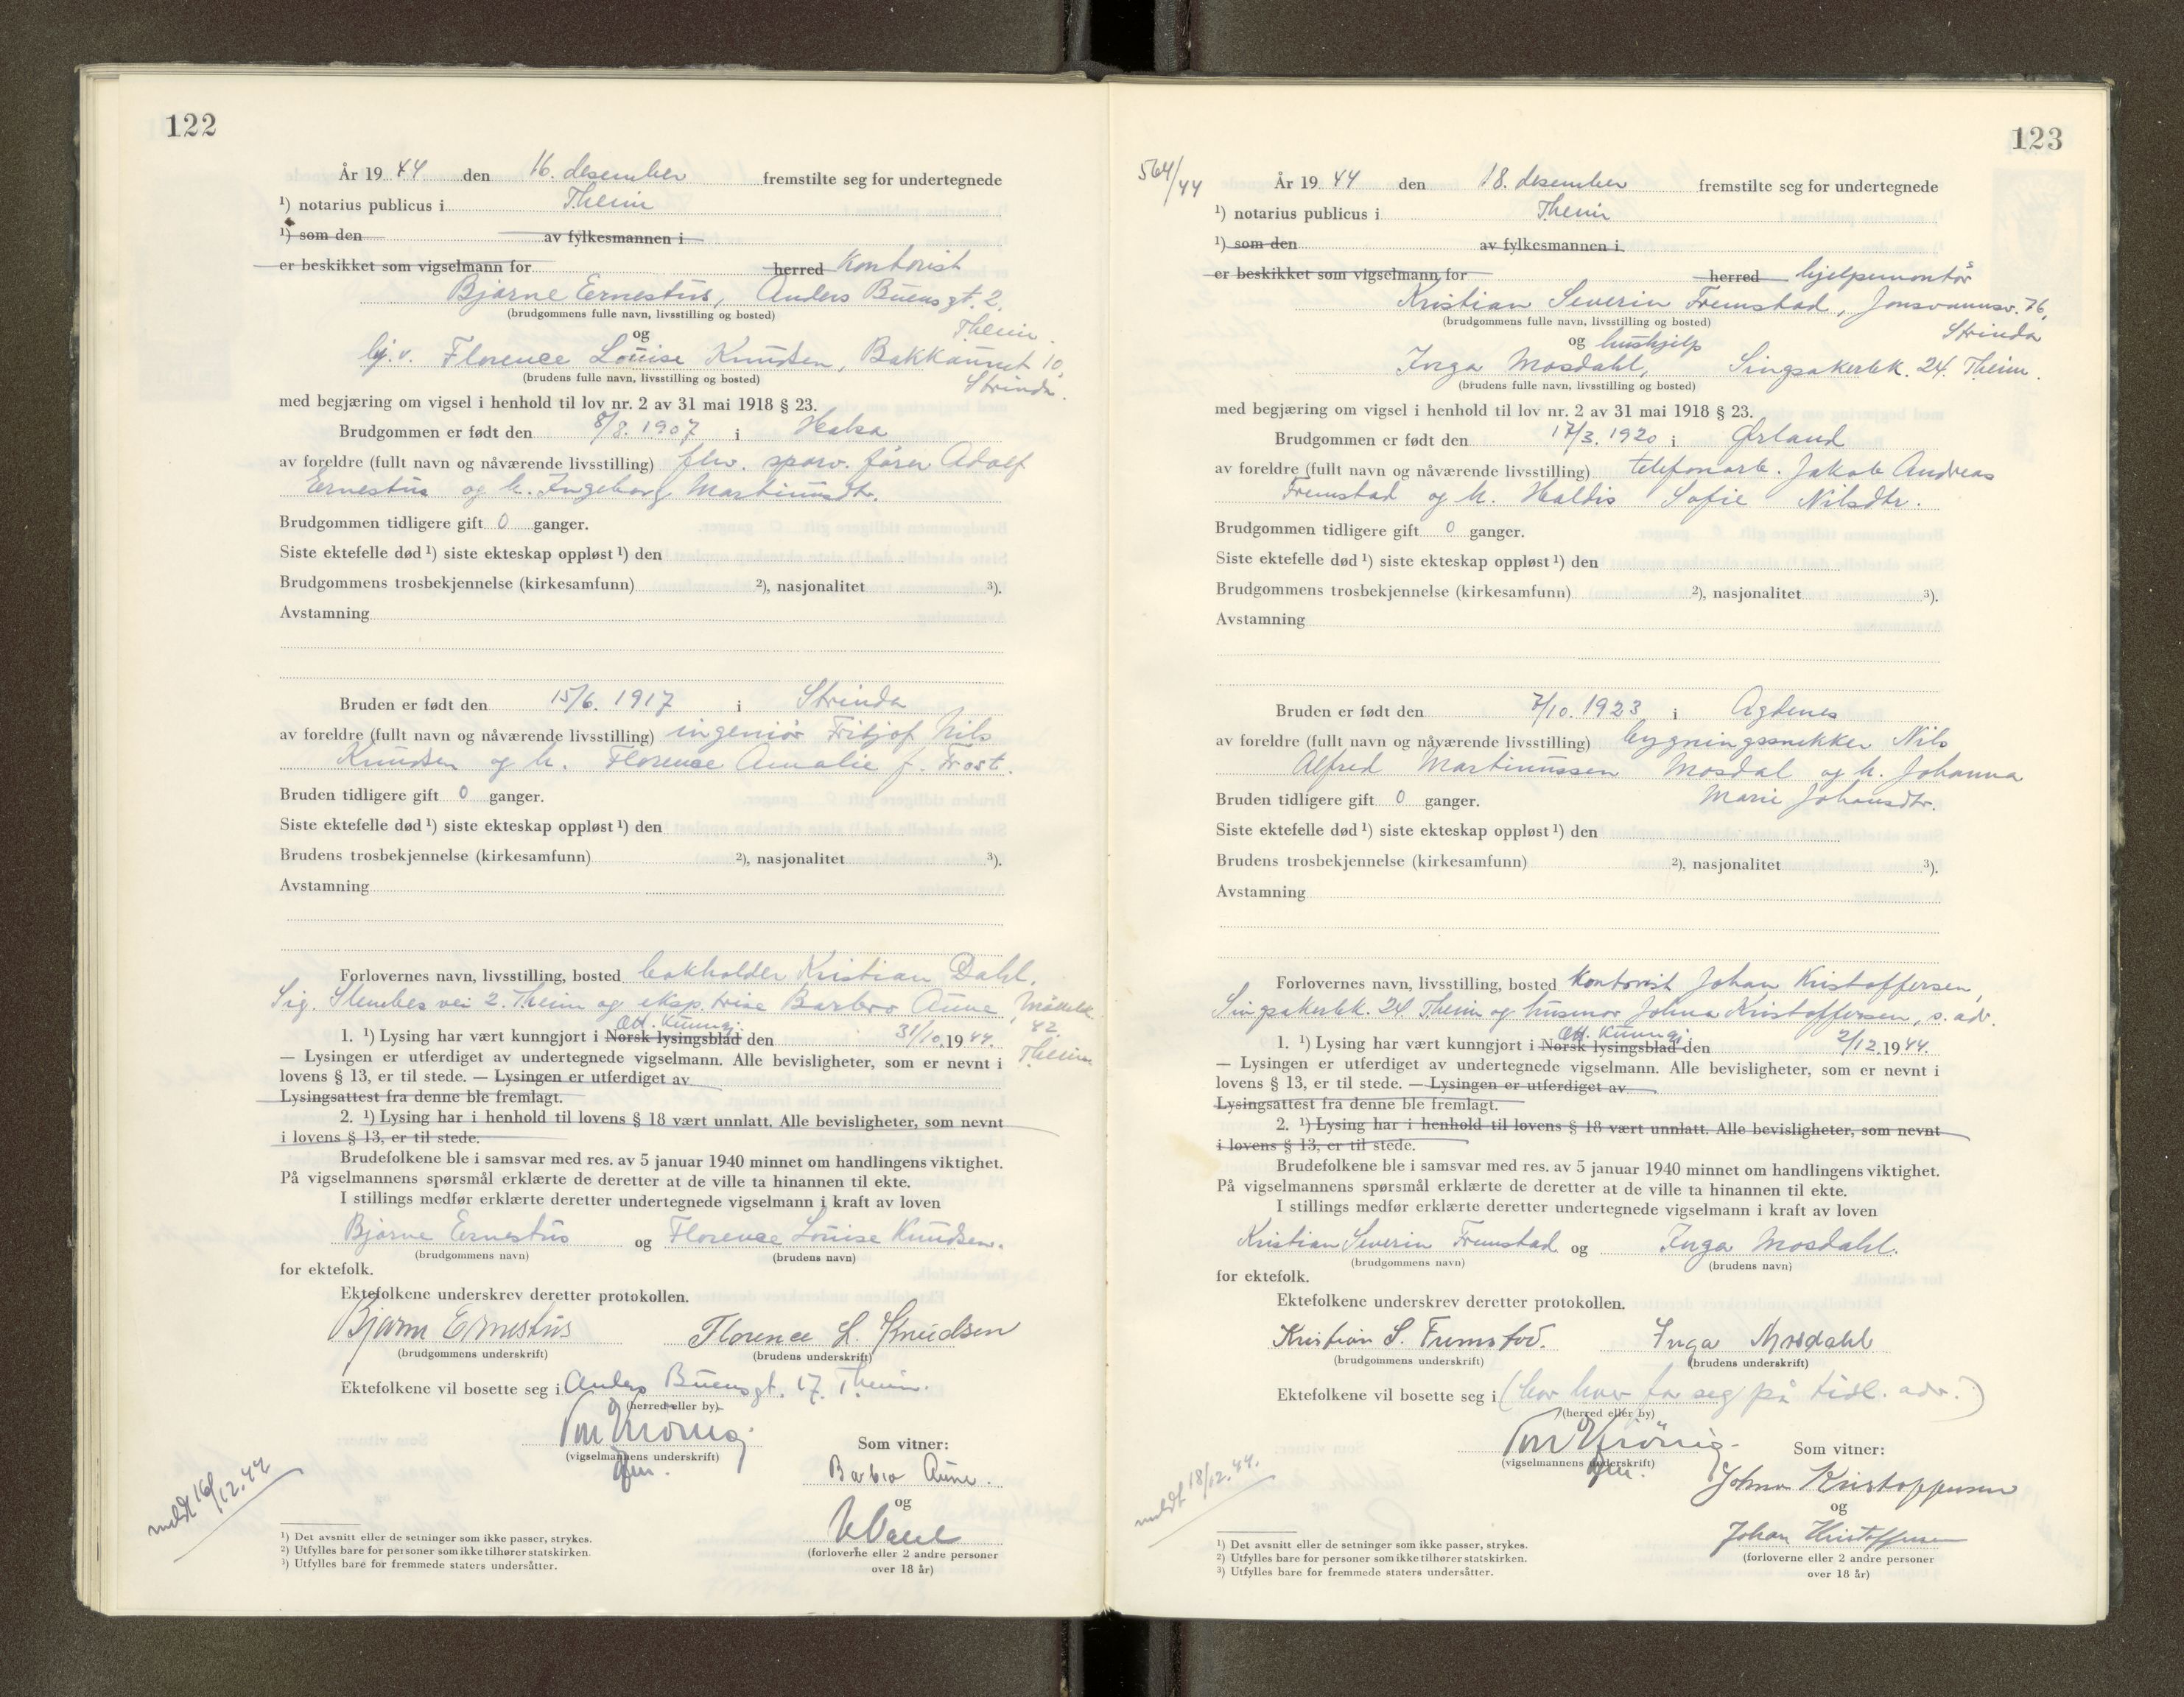 122
År 19 44 den 16. desember fremstilte seg for undertegnede
¹) notarius publicus i Theim
¹) som den av fylkesmannen i
er beskikket som vigselmann for herred Kontorist
Bjarne Ernestus, Anders Buens gt. 2,
(brudgommens fulle navn, livsstilling og bosted)
Theim.
og
hj.v. Florence Louise Knudsen, Bakkaunet 10,
(brudens fulle navn, livsstilling og bosted)
Strinda.
med begjæring om vigsel i henhold til lov nr. 2 av 31 mai 1918 § 23.
Brudgommen er født den 8/8. 1907 i Halsa
av foreldre (fullt navn og nåværende livsstilling) fhv. sporv. fører Adolf
Ernestus og h. Ingeborg Martinusdtr.
Brudgommen tidligere gift 0 ganger.
Siste ektefelle død ¹) siste ekteskap oppløst ¹) den
Brudgommens trosbekjennelse (kirkesamfunn) ²), nasjonalitet ³).
Avstamning
Bruden er født den 15/6. 1917 i Strinda
av foreldre (fullt navn og nåværende livsstilling) ingeniør Fritjof Nils
Knudsen og h. Florence Amalie f. Frost.
Bruden tidligere gift 0 ganger.
Siste ektefelle død ¹) siste ekteskap oppløst ¹) den
Brudens trosbekjennelse (kirkesamfunn) ²), nasjonalitet ³).
Avstamning
Forlovernes navn, livsstilling, bosted bokholder Kristian Dahl,
Sig. vei 2. Theim og eksp.trise Barbro Aune,
82.
Off. Kunngj.
1. ¹) Lysing har vært kunngjort i Norsk lysingsblad den 31/10.1944.
Theim
— Lysingen er utferdiget av undertegnede vigselmann. Alle bevisligheter, som er nevnt i
lovens § 13, er til stede. — Lysingen er utferdiget av
Lysingsattest fra denne ble fremlagt.
2. ¹) Lysing har i henhold til lovens § 18 vært unnlatt. Alle bevisligheter, som nevnt
i lovens § 13, er til stede.
Brudefolkene ble i samsvar med res. av 5 januar 1940 minnet om handlingens viktighet.
På vigselmannens spørsmål erklærte de deretter at de ville ta hinannen til ekte.
I stillings medfør erklærte deretter undertegnede vigselmann i kraft av loven
Bjarne Ernestus og Florence Louise Knudsen.
(brudgommens navn) (brudens navn)
for ektefolk.
Ektefolkene underskrev deretter protokollen.
Bjarne Ernestus Florence L. Knudsen
(brudgommens underskrift) (brudens underskrift)
Ektefolkene vil bosette seg i Anders Buens gt. 17. Theim.
(herred eller by)
(vigselmannens underskrift)
Som vitner:
Barbro Aune.
og
K Dahl
(forloverne eller 2 andre personer
over 18 år)
meldt 16/12.44
¹) Det avsnitt eller de setninger som ikke passer, strykes.
²) Utfylles bare for personer som ikke tilhører statskirken.
³) Utfylles bare for fremmede staters undersåtter.
123
564/44
År 19 44 den 18. desember fremstilte seg for undertegnede
¹) notarius publicus i Theim
¹) som den av fylkesmannen i
er beskikket som vigselmann for herred hjelpemontør
Kristian Severin Fremstad, Jonsvannsv. 76,
(brudgommens fulle navn, livsstilling og bosted)
Strinda
og hushjelp
Inga Mosdahl, Singsakerbk. 24. Theim.
(brudens fulle navn, livsstilling og bosted)
med begjæring om vigsel i henhold til lov nr. 2 av 31 mai 1918 § 23.
Brudgommen er født den 17/3. 1920 i Ørland
av foreldre (fullt navn og nåværende livsstilling) telefonarb. Jakob Andreas
Fremstad og h. Haldis Sofie Nilsdtr.
Brudgommen tidligere gift 0 ganger.
Siste ektefelle død ¹) siste ekteskap oppløst ¹) den
Brudgommens trosbekjennelse (kirkesamfunn) ²), nasjonalitet ³).
Avstamning
Bruden er født den 7/10. 1923 i Agdenes
av foreldre (fullt navn og nåværende livsstilling) bygningssnekker Nils
Alfred Martinussen Mosdal og h. Johanna
Bruden tidligere gift 0 ganger. Marie Johansdtr.
Siste ektefelle død ¹) siste ekteskap oppløst ¹) den
Brudens trosbekjennelse (kirkesamfunn) ²), nasjonalitet ³).
Avstamning
Forlovernes navn, livsstilling, bosted Kontorist Johan Kristoffersen,
Singsakerbk. 24. Theim og husmor Johna Kristoffersen, s. adr.
Off. Kunngj.
1. ¹) Lysing har vært kunngjort i Norsk lysingsblad den 2/12.1944.
— Lysingen er utferdiget av undertegnede vigselmann. Alle bevisligheter, som er nevnt i
lovens § 13, er til stede. — Lysingen er utferdiget av
Lysingsattest fra denne ble fremlagt.
2. ¹) Lysing har i henhold til lovens § 18 vært unnlatt. Alle bevisligheter, som nevnt
i lovens § 13, er til stede.
Brudefolkene ble i samsvar med res. av 5 januar 1940 minnet om handlingens viktighet.
På vigselmannens spørsmål erklærte de deretter at de ville ta hinannen til ekte.
I stillings medfør erklærte deretter undertegnede vigselmann i kraft av loven
Kristian Severin Fremstad og Inga Mosdahl.
(brudgommens navn) (brudens navn)
for ektefolk.
Ektefolkene underskrev deretter protokollen.
Kristian S. Fremstad. Inga Mosdahl
(brudgommens underskrift) (brudens underskrift)
Ektefolkene vil bosette seg i (bor hver for seg på tidl. adr.)
(herred eller by)
(vigselmannens underskrift)
Som vitner:
Johna Kristoffersen
og
Johan Kristoffersen
(forloverne eller 2 andre personer
over 18 år)
meldt 18/12.44.
¹) Det avsnitt eller de setninger som ikke passer, strykes.
²) Utfylles bare for personer som ikke tilhører statskirken.
³) Utfylles bare for fremmede staters undersåtter.